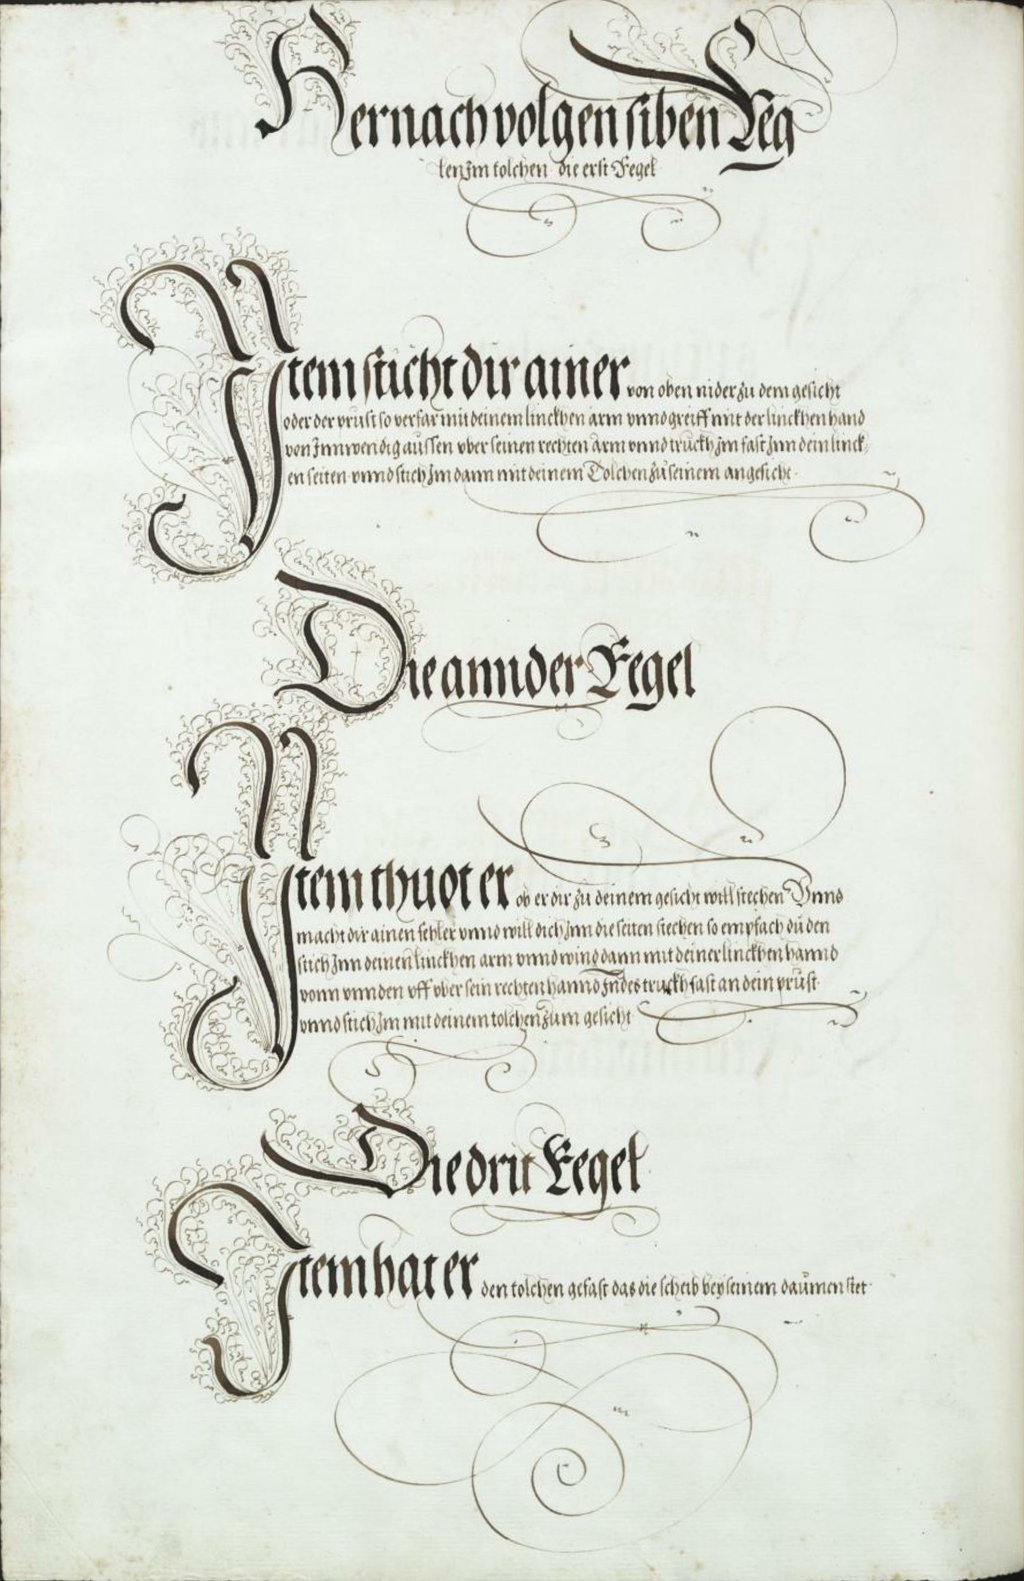 Hernach volgen siben Reg
len Im tolchen die erst Regel
Item sticht dir ainer von oben nider zu dem gesicht
oder der prust so versar mit deinem linckhen arm vnnd greiff mit der linckhen hand
von Innwendig aussen vber seinen rechten arm vnnd truckh Im fast Inn dein linck
en seiten vnnd stich Im dann mit deinem Tolchen zů seinem angesicht
Die annder Regel
Item thuot er ob er dir zů deinem gesicht will stechen Vnnd
macht dir ainen fehler vnnd will dich Inn die seiten stechen so empfach dů den
stich Inn deinen linckhen arm vnnd wind dann mit deiner linckhen hannd
vonn vnnden vff vber sein rechten hannd Indes truckh fast an dein průst
vnnd stich Im mit deinem tolchen zům gesicht
Die drit Regel
Item hat er den tolchen gefast das die scheib bey seinem daůmen stet